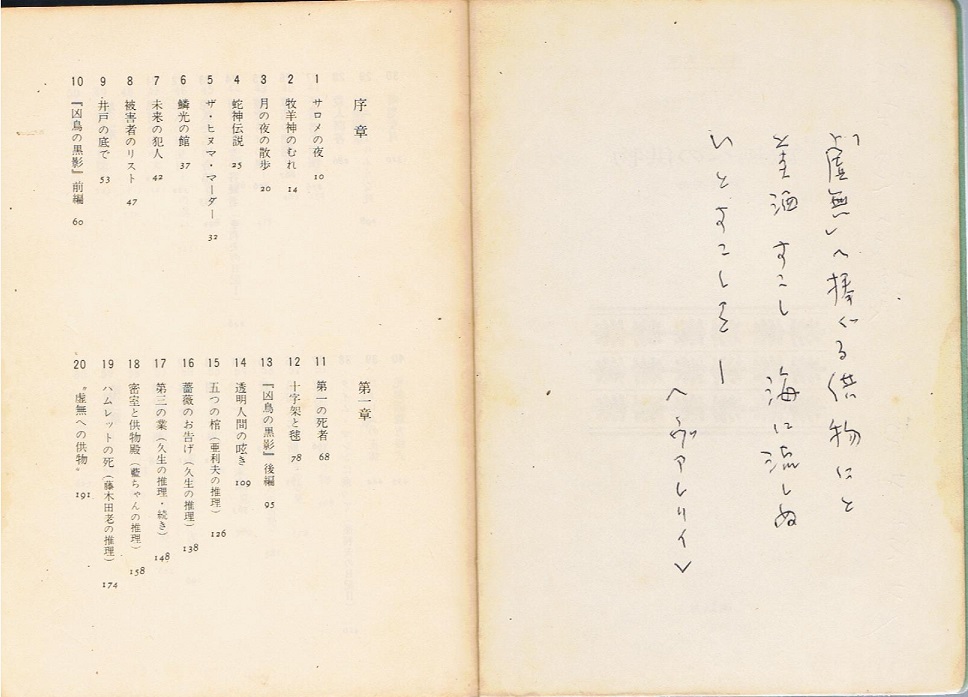 「虚無」へ捧ぐる供物にと
美酒すこし 海に流しぬ
いとすこしを―
〈ヴァレリイ〉
序章
1 サロメの夜 10
2 牧羊神のむれ 14
3 月の夜の散歩 20
4 蛇神伝説 25
5 ザ・ヒヌマ・マーダー 32
6 鱗光の館 37
7 未来の犯人 42
8 被害者のリスト 47
9 井戸の底で 53
10 『凶鳥の黒影』前編 60
第一章
11 第一の死者 68
12 十字架と毬 78
13 『凶鳥の黒影』後編 95
14 透明人間の呟き 109
15 五つの棺（亜利夫の推理） 126
16 薔薇のお告げ（久生の推理） 138
17 第三の業（久生の推理・続き） 148
18 密室と供物殿（藍ちゃんの推理） 158
19 ハムレットの死（藤木田老の推理） 174
20 “虚無への供物” 191